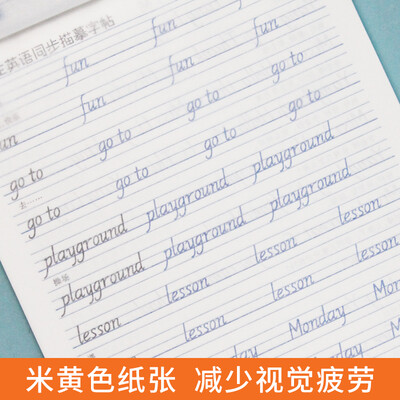 英语同步描摹字帖
fun fun fun
un fun fun fun
go to go to go to go to
go to go to go to go to
去
playground playground playground
playground playground playground
操场
lesson lesson lesson lesson
lesson lesson lesson
课
Monday Mo
Monday Mon
米黄色纸张 减少视觉疲劳